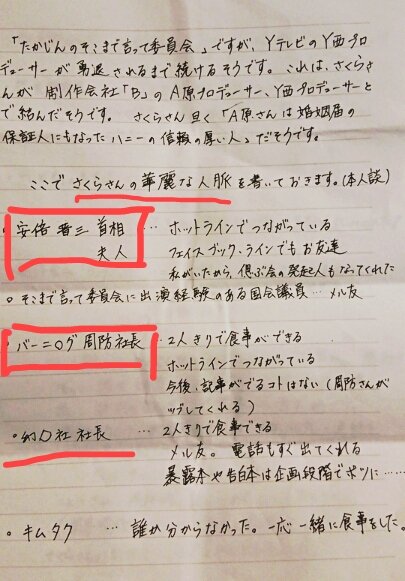 「たかじんのそこまで言って委員会」ですが、Yテレビの Y西プロ
デューサーが勇退されるまで続けるそうです。これは、さくらさ
んが制作会社「B」のA原プロデューサー、Y西プロデューサーと
で結んだそうです。 さくらさん曰く「A原さんは婚姻届の
保証人にもなったハニーの信頼の厚い人」だそうです。
ここでさくらさんの華麗な人脈を書いておきます。(本人談)
・安倍晋三首相 … ホットラインでつながっている
夫人 フェイスブック、ラインでもお友達
私がいたから、偲ぶ会の発起人もなってくれた
○そこまで言って委員会に出演経験のある国会議員…メル友
・バーニ○グ周防社長… 2人きりで食事ができる
ホットラインでつながっている
今後、記事がでるコトはない(周防さんが
ツブしてくれる)
・幻○社 社長 … 2人きりで食事できる
メル友。 電話もすぐ出てくれる
暴露本や告白本は企画段階でボツに……
・キムタク … 誰か分からなかった。一応一緒に食事をした。